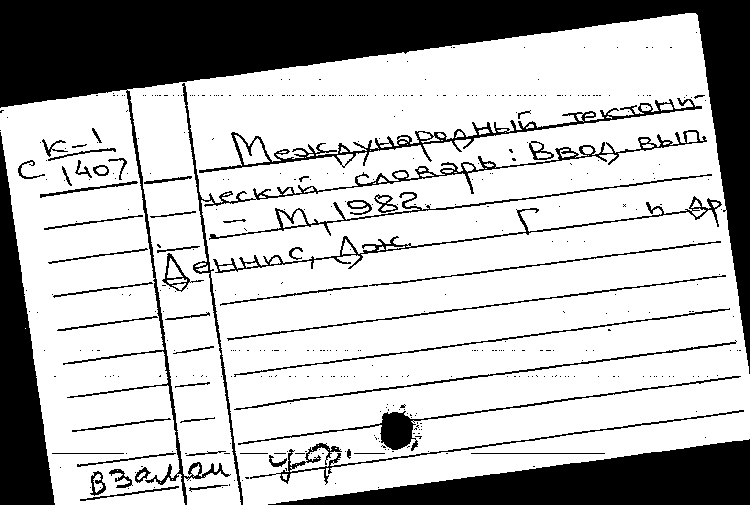 С К-1/1407
Международный тектони-
ческий словарь: Ввод. вып.
. – М., 1982.
Деннис, Дж. Г и др.
взамен